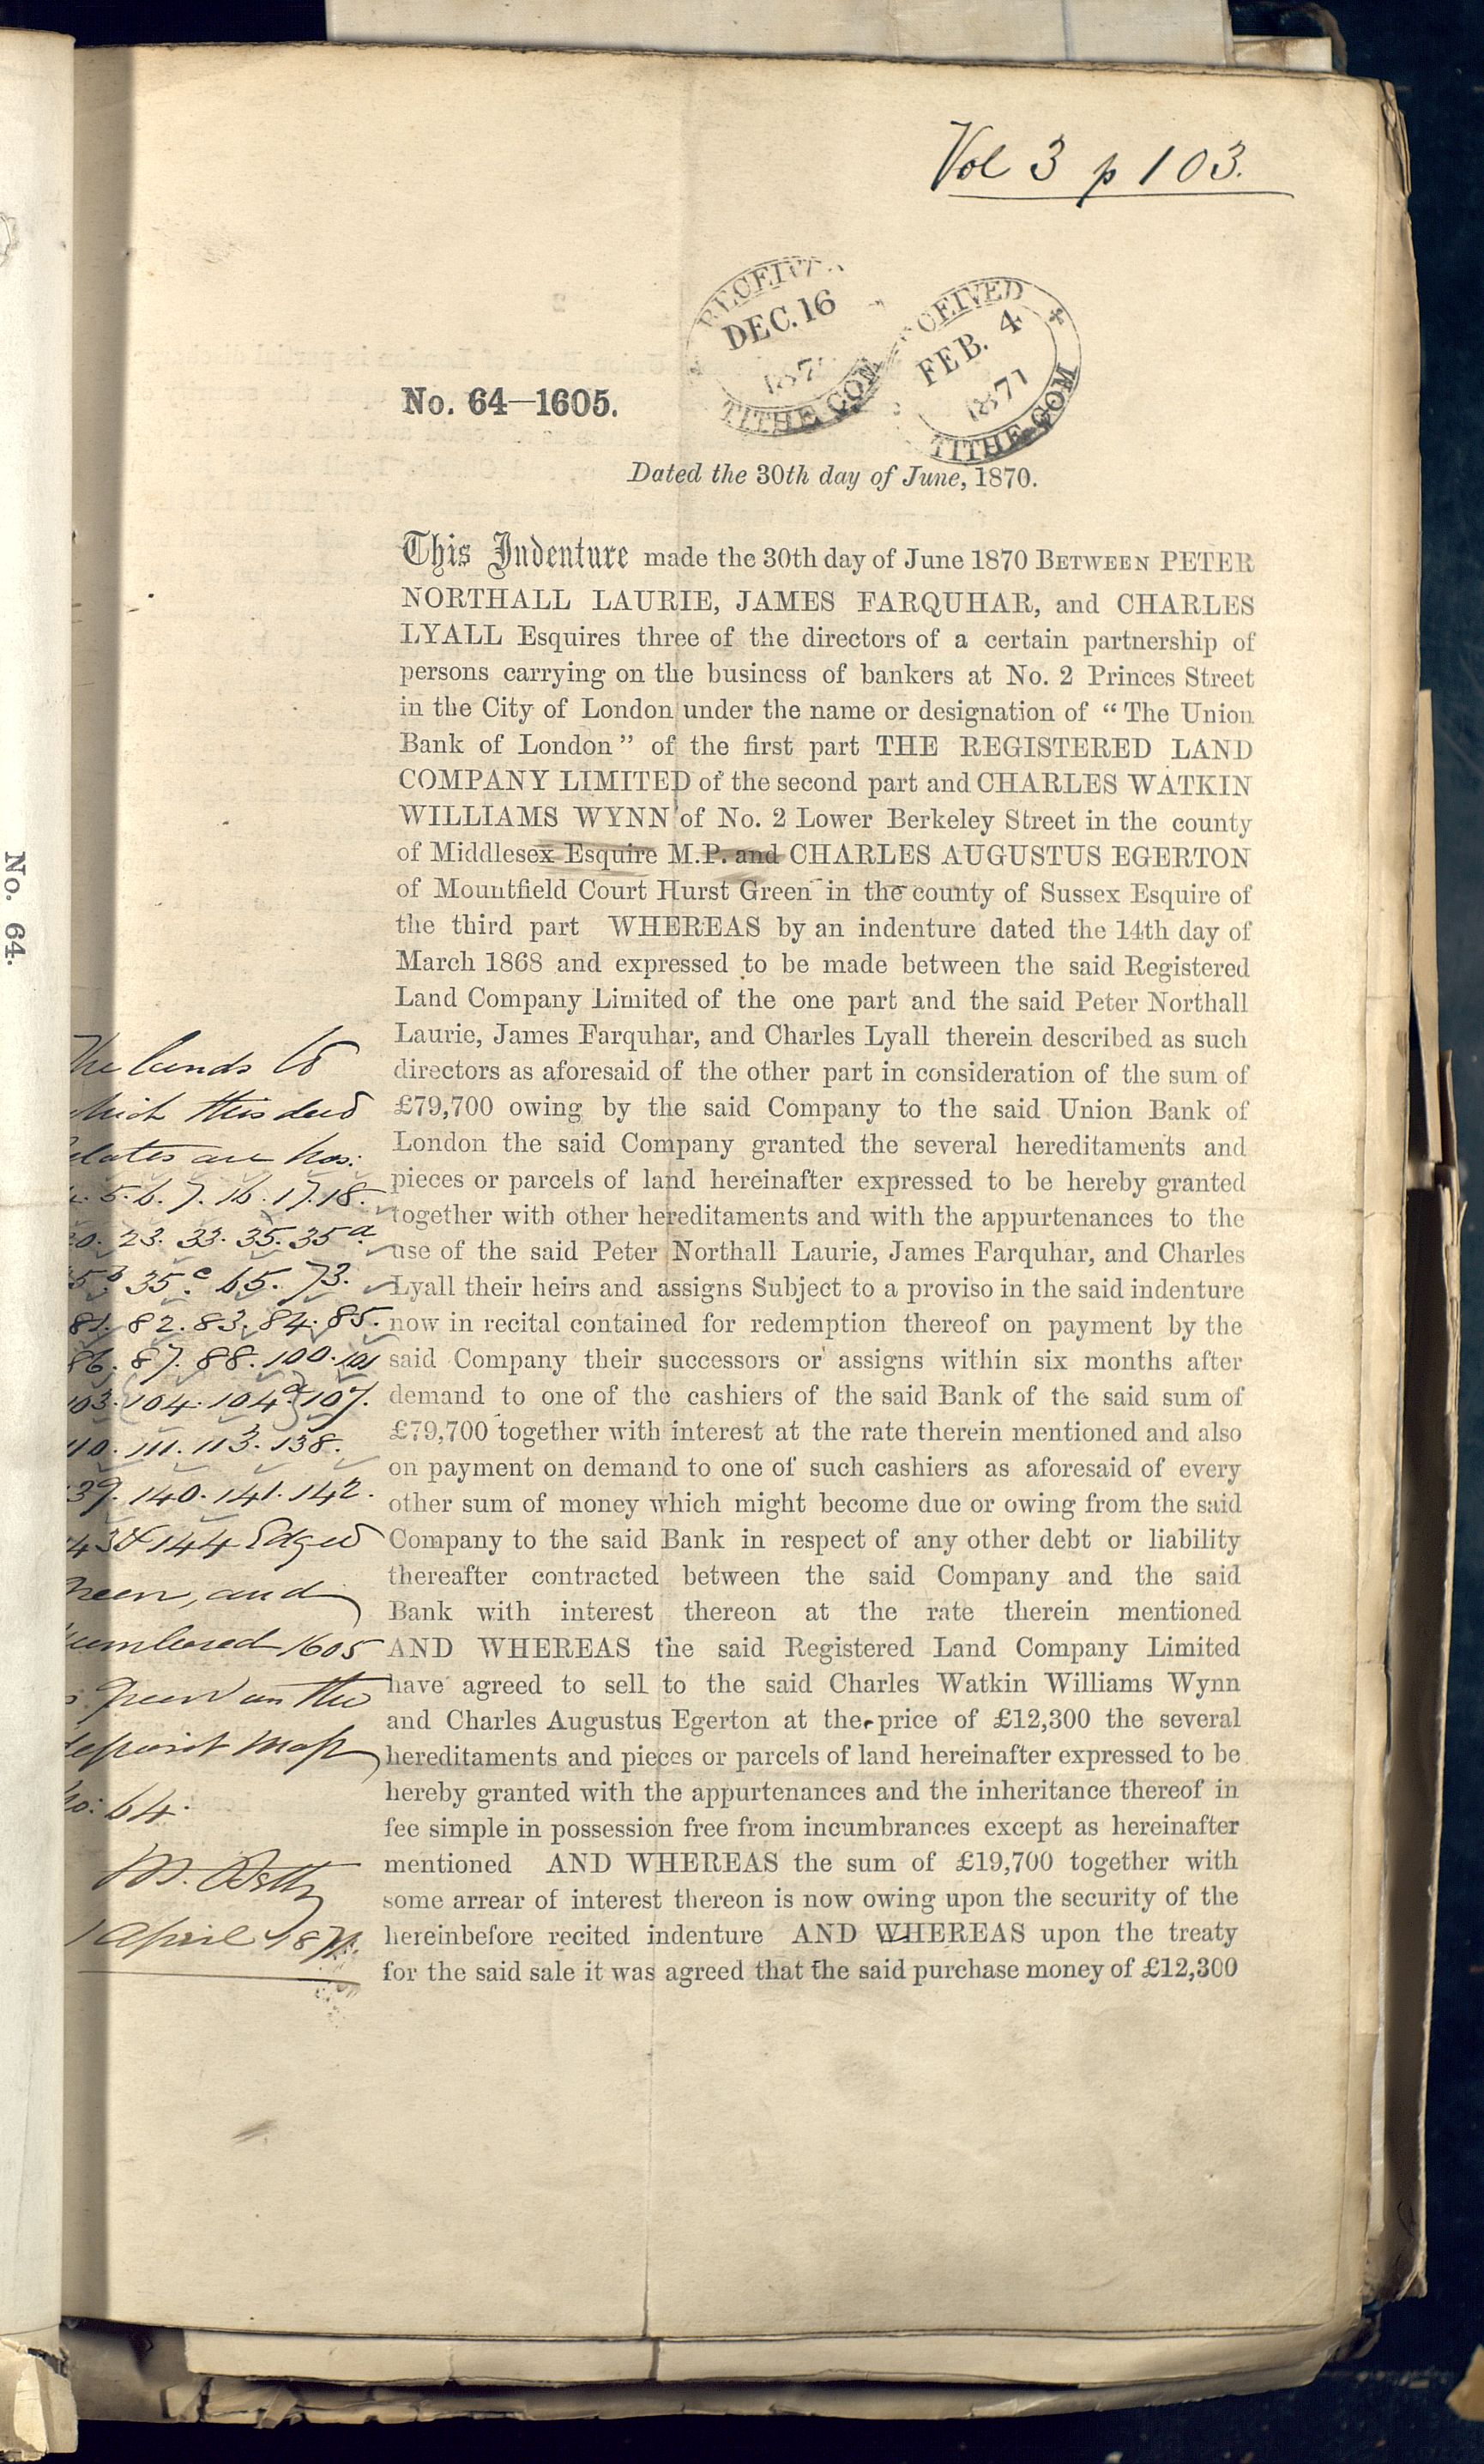 Vol 3 p 103.
RECEIVED
DEC. 16
TITHE COM
RECEIVED
FEB. 4
1871
TITHE COM
No. 64—1605.
Dated the 30th day of June, 1870.
This Indenture made the 30th day of June 1870 BETWEEN PETER
NORTHALL LAURIE, JAMES FARQUHAR, and CHARLES
LYALL Esquires three of the directors of a certain partnership of
persons carrying on the business of bankers at No. 2 Princes Street
in the City of London under the name or designation of “The Union
Bank of London” of the first part THE REGISTERED LAND
COMPANY LIMITED of the second part and CHARLES WATKIN
WILLIAMS WYNN of No. 2 Lower Berkeley Street in the county
of Middlesex Esquire M.P. and CHARLES AUGUSTUS EGERTON
of Mountfield Court Hurst Green in the county of Sussex Esquire of
the third part WHEREAS by an indenture dated the 14th day of
March 1868 and expressed to be made between the said Registered
Land Company Limited of the one part and the said Peter Northall
Laurie, James Farquhar, and Charles Lyall therein described as such
directors as aforesaid of the other part in consideration of the sum of
£79,700 owing by the said Company to the said Union Bank of
London the said Company granted the several hereditaments and
pieces or parcels of land hereinafter expressed to be hereby granted
together with other hereditaments and with the appurtenances to the
use of the said Peter Northall Laurie, James Farquhar, and Charles
Lyall their heirs and assigns Subject to a proviso in the said indenture
now in recital contained for redemption thereof on payment by the
said Company their successors or assigns within six months after
demand to one of the cashiers of the said Bank of the said sum of
£79,700 together with interest at the rate therein mentioned and also
on payment on demand to one of such cashiers as aforesaid of every
other sum of money which might become due or owing from the said
Company to the said Bank in respect of any other debt or liability
thereafter contracted between the said Company and the said
Bank with interest thereon at the rate therein mentioned
AND WHEREAS the said Registered Land Company Limited
have agreed to sell to the said Charles Watkin Williams Wynn
and Charles Augustus Egerton at the price of £12,300 the several
hereditaments and pieces or parcels of land hereinafter expressed to be
hereby granted with the appurtenances and the inheritance thereof in
fee simple in possession free from incumbrances except as hereinafter
mentioned AND WHEREAS the sum of £19,700 together with
some arrear of interest thereon is now owing upon the security of the
hereinbefore recited indenture AND WHEREAS upon the treaty
for the said sale it was agreed that the said purchase money of £12,300
The lands to
which this deed
relates are Nos:
5. 6. 7. 16. 17. 18.
20. 23. 33. 35. 35a.
35b. 35c. 65. 73.
81. 82. 83. 84. 85.
86. 87. 88. 100. 101
103. {104. 104a} 107.
110. 111. 113. 138.
139. 140. 141. 142.
143 & 144 Edged
Green, and
numbered 1605
Green on the
deposit Map
No: 64.
April 1871.
No. 64.